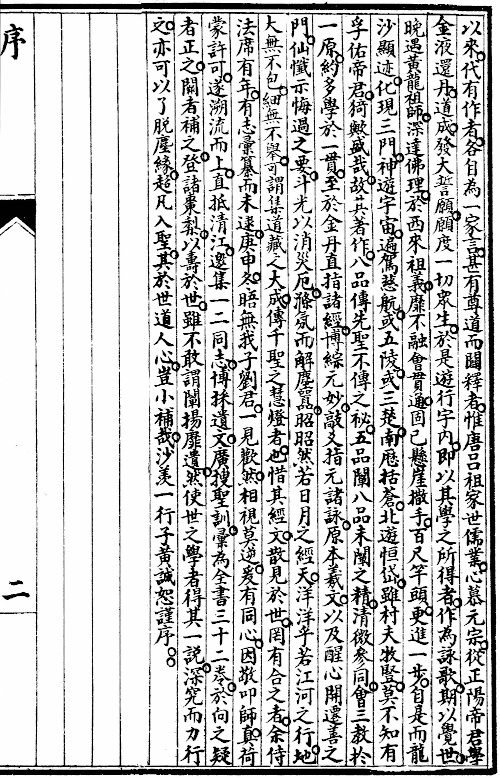 序
以來代有作者各自為一家言甚有尊道而闢釋者惟唐呂祖家世儒業心慕元宗從正陽帝君學
金液還丹道成發大誓願願度一切眾生於是遊行宇內即以其學之所得者作為詠歌期以覺世
晚遇黃龍祖師深達佛理於西來祖義靡不融會貫通固已懸崖撒手百尺竿頭更進一步自是而龍
沙顯迹化現三門神遊宇宙遍駕慈航或五陵或三楚南歷括蒼北遊恒岱雖村夫牧豎莫不知有
孚佑帝君猗歟盛哉故其著作八品傳先聖不傳之祕五品闡八品未闡之精清微參同會三教於
一原約多學於一貫至於金丹直指諸經博綜元妙敲爻指元諸詠原本羲文以及醒心開還善之
門仙懺示悔過之要斗光以消災厄滌氛而解塵囂昭昭然若日月之經天洋洋乎若江河之行地
大無不包細無不舉可謂集道藏之大成傳千聖之慧燈者也惜其經文散見於世罔有合之者余侍
法席有年有志彙纂而未逮庚申冬晤無我子劉君一見歡然相視莫逆爰有同心因敬叩師真荷
蒙許可遂溯流而上直抵清江邀集一二同志傳採遺文廣搜聖訓彙為全書三十二卷於向之疑
者正之闕者補之登諸棗梨以壽於世雖不敢謂闡揚靡遺然使世之學者得其一說深究而力行
之亦可以了脫塵緣超凡入聖其於世道人心豈小補哉沙羨一行子黃誠恕謹序
二